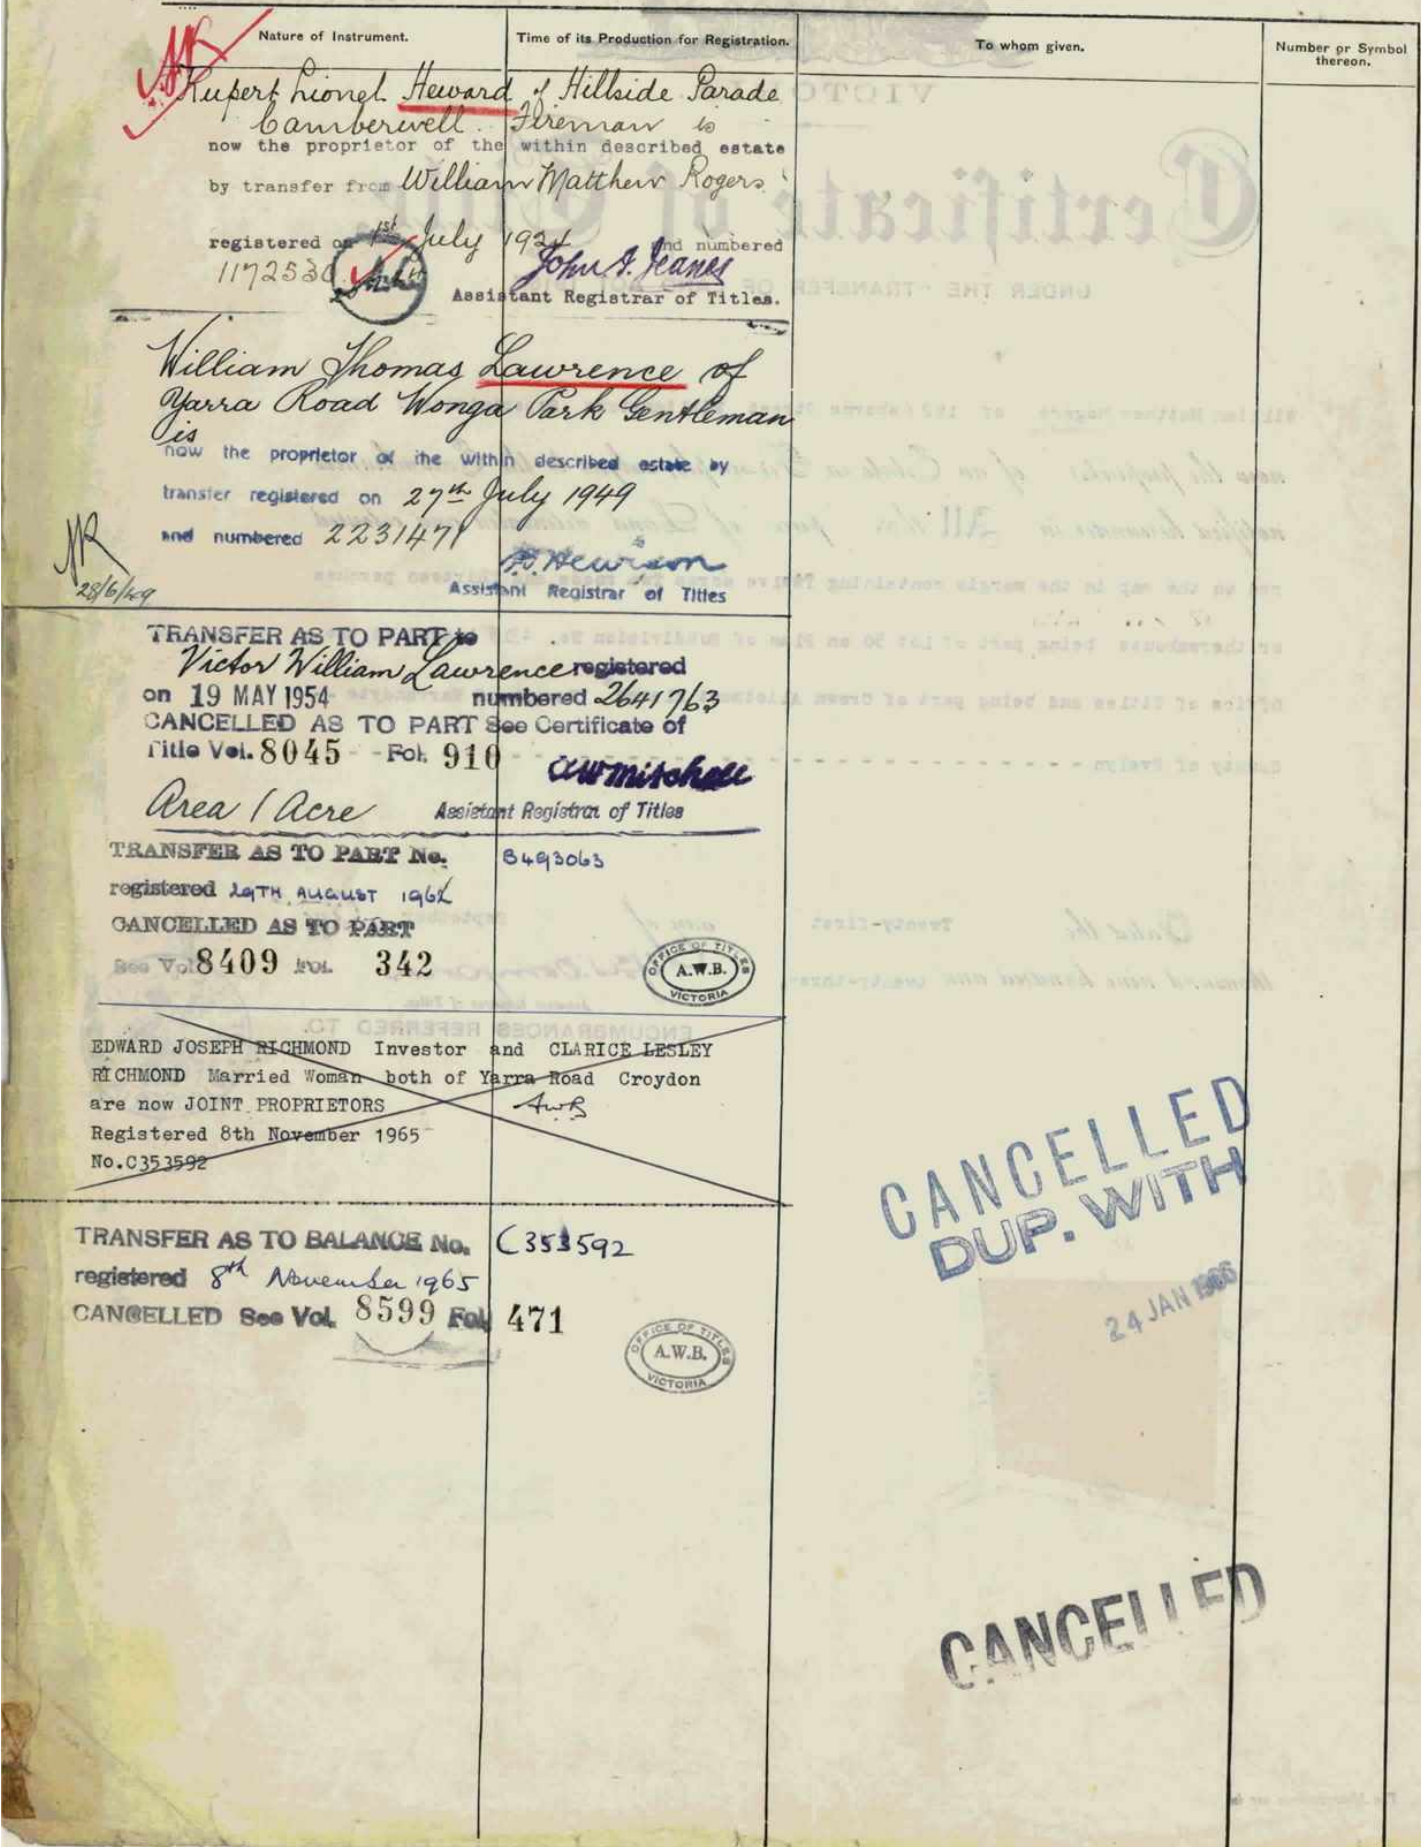 Nature of Instrument.
Time of its Production for Registration.
To whom given.
Number or Symbol thereon.
Rupert Lionel Heward of Hillside Parade
Camberwell. Fireman is
now the proprietor of the within described estate
by transfer from William Matthew Rogers
registered on 1st July 1924 and numbered
1172530
John A. Jeanes
Assistant Registrar of Titles.
William Thomas Lawrence of
Yarra Road Wonga Park Gentleman
is
now the proprietor of the within described estate by
transfer registered on 27th July 1949
and numbered 2231471
28/6/49
Assistant Registrar of Titles
TRANSFER AS TO PART to
Victor William Lawrence registered
on 19 MAY 1954 numbered 2641763
CANCELLED AS TO PART See Certificate of
Title Vol. 8045 Fol. 910
Area 1 Acre Assistant Registrar of Titles
TRANSFER AS TO PART No. B493063
registered 29TH AUGUST 1962
CANCELLED AS TO PART
See Vol. 8409 Fol. 342
OFFICE OF TITLES
A.W.B.
VICTORIA
EDWARD JOSEPH RICHMOND Investor and CLARICE LESLEY
RICHMOND Married Woman both of Yarra Road Croydon
are now JOINT PROPRIETORS
AWB
Registered 8th November 1965
No.C353592
TRANSFER AS TO BALANCE No. C353592
registered 8th November 1965
CANCELLED See Vol. 8599 Fol. 471
OFFICE OF TITLES
A.W.B.
VICTORIA
CANCELLED
DUP. WITH
24 JAN 1966
CANCELLED